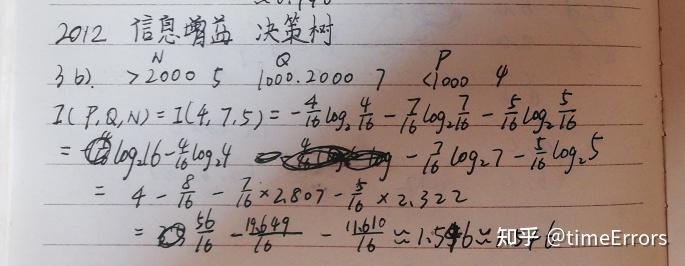 2012 信息增益 决策树
N Q P
3 b). >2000 5 1000.2000 7 <1000 4
I(P,Q,N)=I(4,7,5)=-4/16 log₂ 4/16 - 7/16 log₂ 7/16 - 5/16 log₂ 5/16
= log₂16 - 4/16 log₂4 - 7/16 log₂7 - 5/16 log₂5
= 4 - 8/16 - 7/16 ×2.807 - 5/16 × 2.322
= 56/16 - 19.649/16 - 11.610/16 ≈ 1.546
知乎 @timeErrors